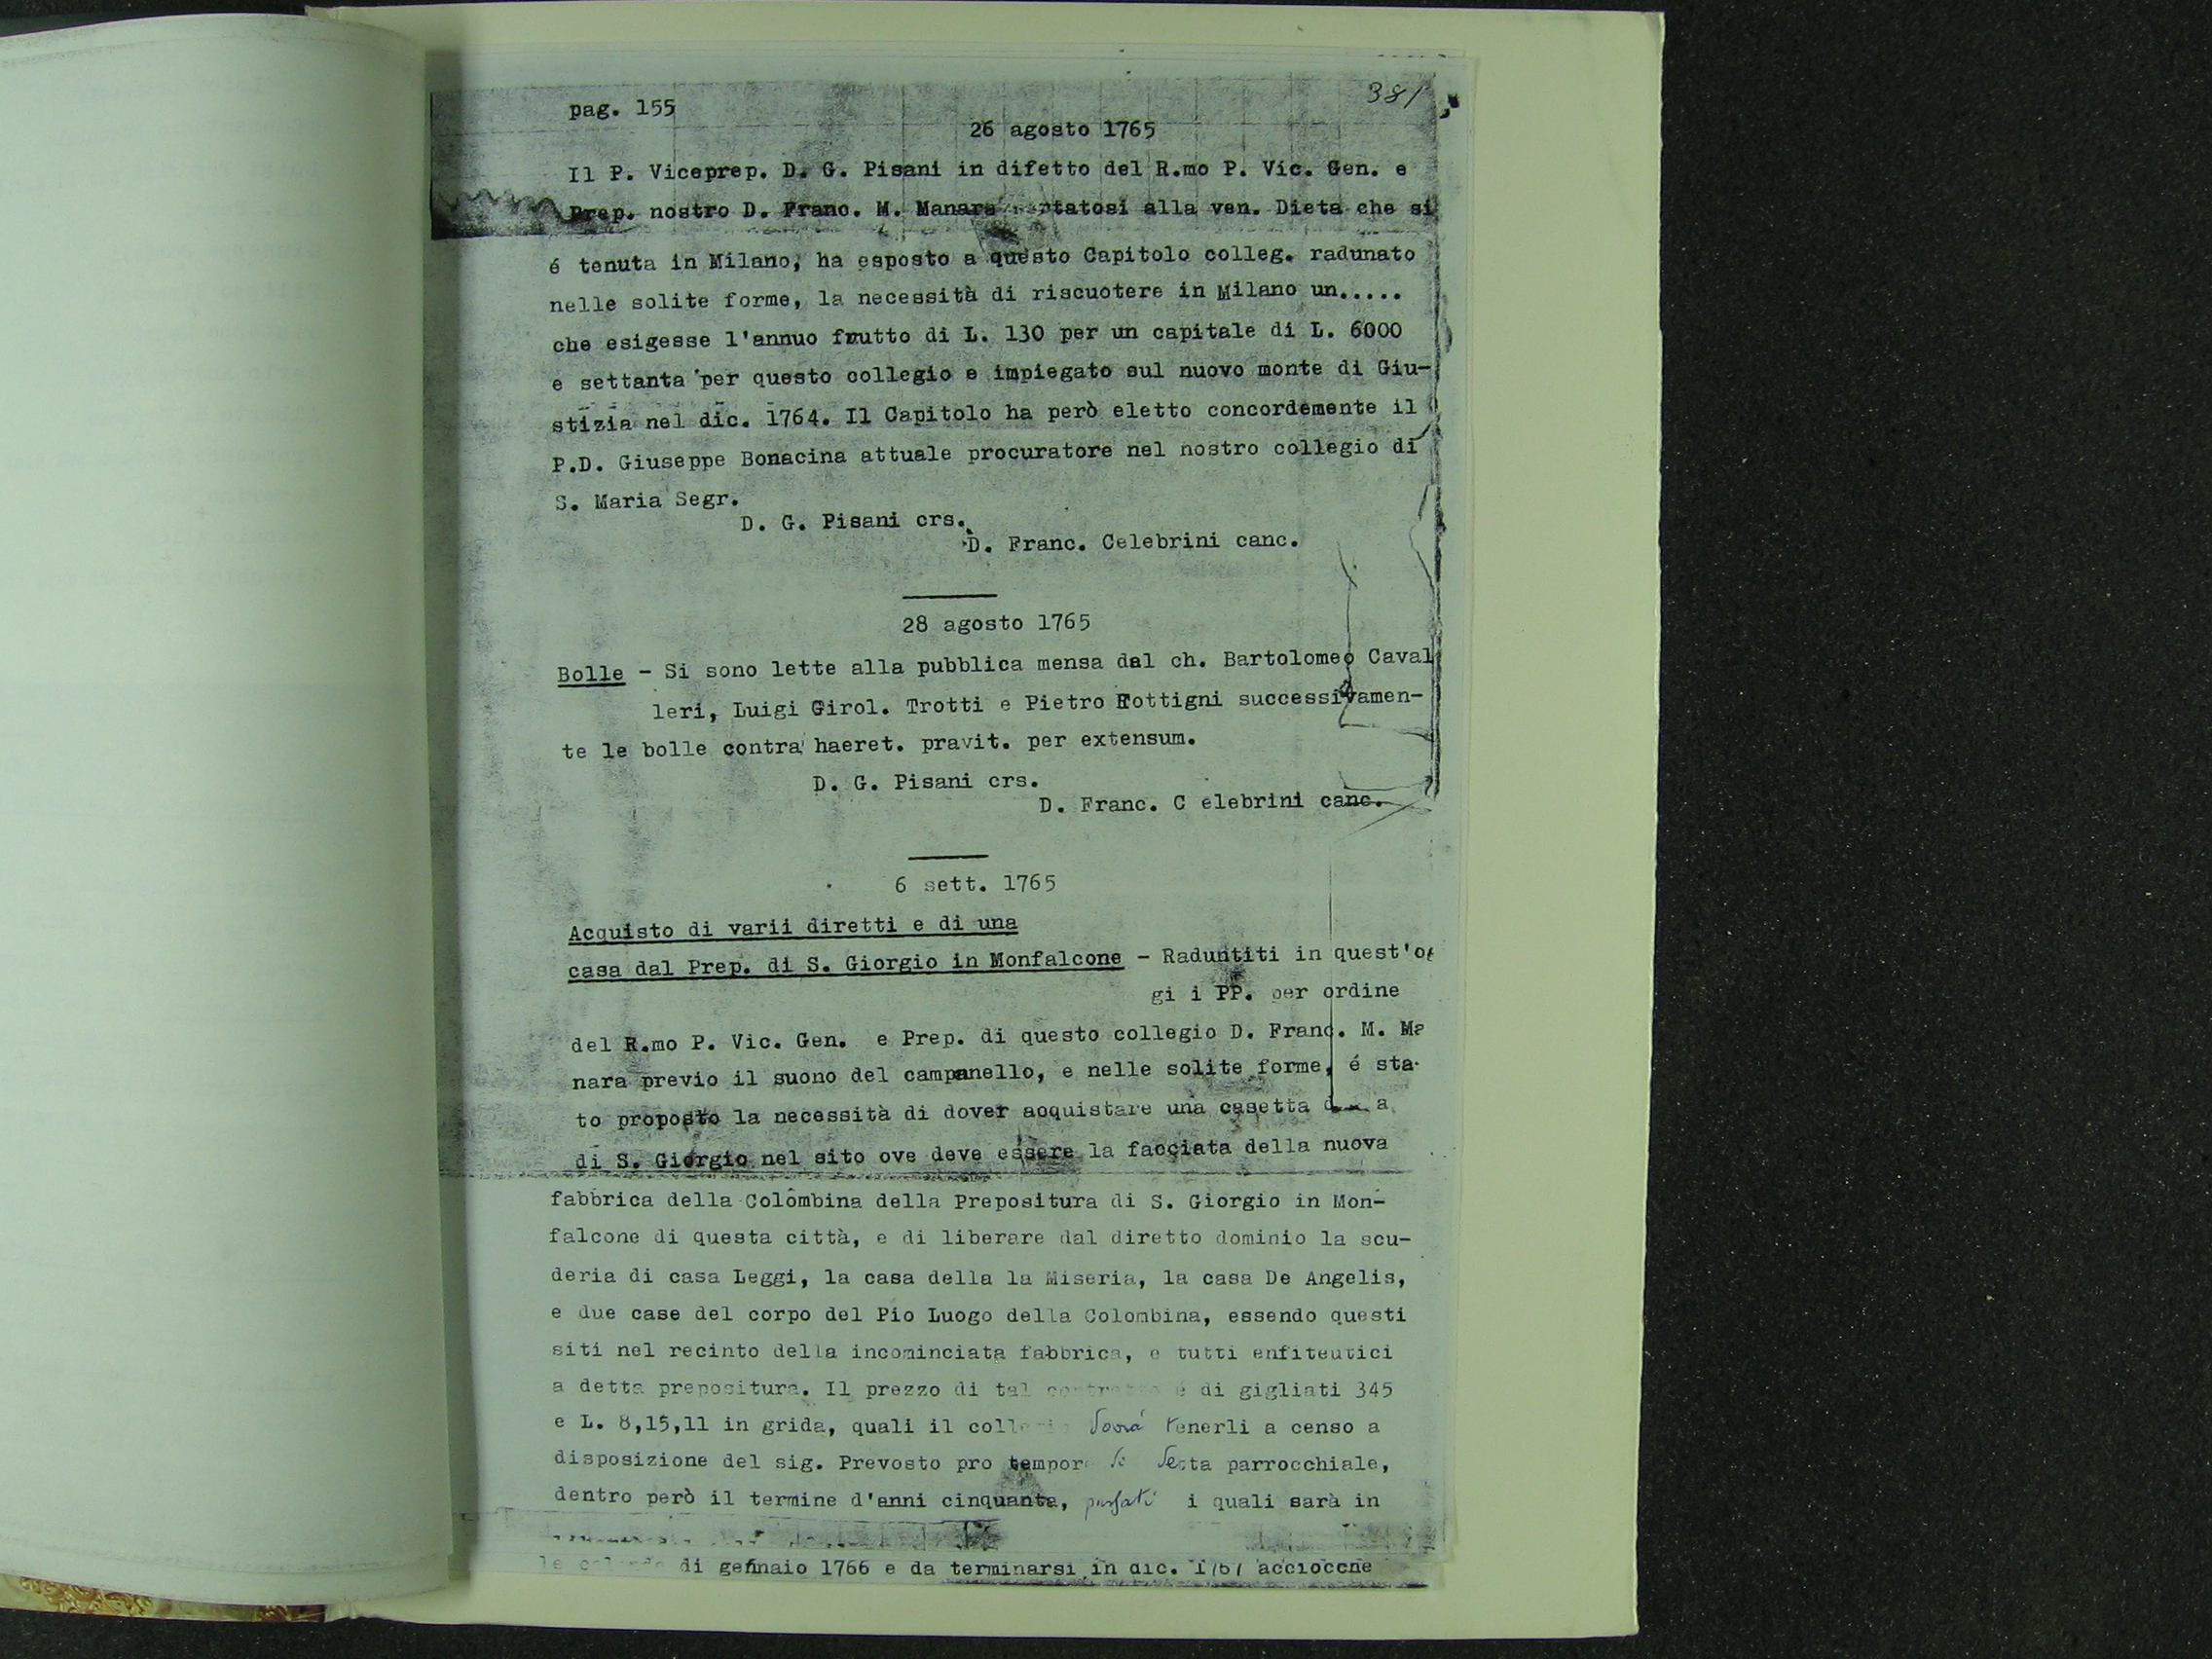 381
pag. 155
26 agosto 1765
Il P. Viceprep. D. G. Pisani in difetto del R.mo P. Vic. Gen. e
Prep. nostro D. Franc. M. Manara portatosi alla ven. Dieta che si
é tenuta in Milano, ha esposto a questo Capitolo colleg. radunato
nelle solite forme, la necessità di riscuotere in Milano un.....
che esigesse l'annuo frutto di L. 130 per un capitale di L. 6000
e settanta per questo collegio e impiegato sul nuovo monte di Giu-
stizia nel dic. 1764. Il Capitolo ha però eletto concordemente il
P.D. Giuseppe Bonacina attuale procuratore nel nostro collegio di
S. Maria Segr.
D. G. Pisani crs.
D. Franc. Celebrini canc.
28 agosto 1765
Bolle - Si sono lette alla pubblica mensa dal ch. Bartolomeo Caval
leri, Luigi Girol. Trotti e Pietro Rottigni successivamen-
te le bolle contra haeret. pravit. per extensum.
D. G. Pisani crs.
D. Franc. C elebrini canc.
6 sett. 1765
Acquisto di varii diretti e di una
casa dal Prep. di S. Giorgio in Monfalcone - Raduntiti in quest'og
gi i PP. per ordine
del R.mo P. Vic. Gen. e Prep. di questo collegio D. Franc. M. Ma
nara previo il suono del campanello, e nelle solite forme, é sta-
to proposto la necessità di dover acquistare una casetta a
di S. Giorgio nel sito ove deve essere la facciata della nuova
fabbrica della Colombina della Prepositura di S. Giorgio in Mon-
falcone di questa città, e di liberare dal diretto dominio la scu-
deria di casa Leggi, la casa della la Miseria, la casa De Angelis,
e due case del corpo del Pio Luogo della Colombina, essendo questi
siti nel recinto della incominciata fabbrica, e tutti enfiteutici
a detta prepositura. Il prezzo di tal contratto é di gigliati 345
e L. 8,15,11 in grida, quali il collegio dovrà tenerli a censo a
disposizione del sig. Prevosto pro tempore di detta parrocchiale,
dentro però il termine d'anni cinquanta, passati i quali sarà in
le calende di gennaio 1766 e da terminarsi in dic. 1767 acciocche